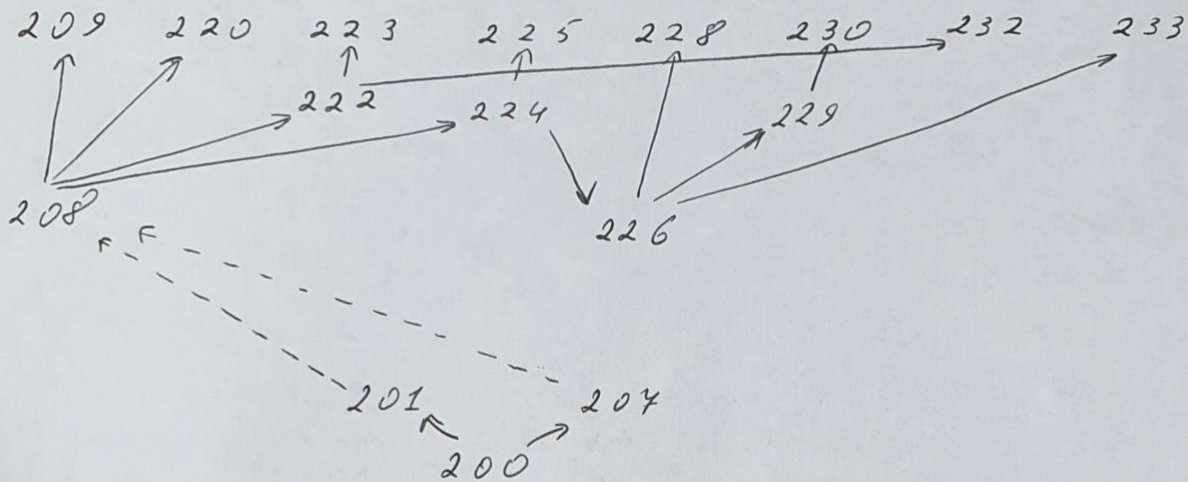 209 220 223 225 228 230 232 233
222 224 229
208 226
201 207
200